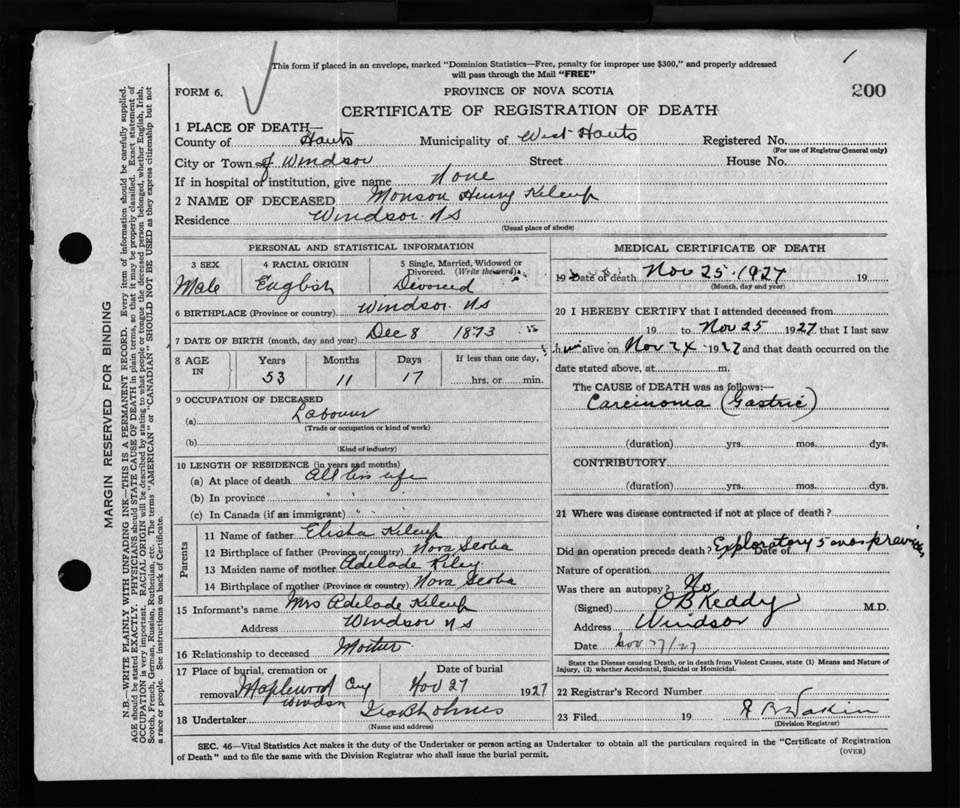 This form if placed in an envelope, marked "Dominion Statistics—Free, penalty for improper use $300," and properly addressed
will pass through the Mail "FREE"
1
FORM 6.
PROVINCE OF NOVA SCOTIA
200
CERTIFICATE OF REGISTRATION OF DEATH
1 PLACE OF DEATH—
County of Hants Municipality of West Hants Registered No.
(For use of Registrar General only)
City or Town of Windsor Street House No.
If in hospital or institution, give name None
2 NAME OF DECEASED Monson Henry
Residence Windsor N S
(Usual place of abode)
PERSONAL AND STATISTICAL INFORMATION
3 SEX 4 RACIAL ORIGIN 5 Single, Married, Widowed or
Divorced. (Write the word)
Male English Divorced
6 BIRTHPLACE (Province or country) Windsor NS
7 DATE OF BIRTH (month, day and year) Dec 8 1873
8 AGE IN Years Months Days If less than one day,
53 11 17 hrs. or min.
9 OCCUPATION OF DECEASED
(a) Labourer
(Trade or occupation or kind of work)
(b)
(Kind of industry)
10 LENGTH OF RESIDENCE (in years and months)
(a) At place of death All his life
(b) In province " "
(c) In Canada (if an immigrant) " "
Parents
11 Name of father Elisha
12 Birthplace of father (Province or country) Nova Scotia
13 Maiden name of mother Adelade Riley
14 Birthplace of mother (Province or country) Nova Scotia
15 Informant's name Mrs Adelade
Address Windsor N S
16 Relationship to deceased Mother
17 Place of burial, cremation or Date of burial
removal Maplewood Cry Windsor Nov 27 1927
18 Undertaker
(Name and address)
MEDICAL CERTIFICATE OF DEATH
19 Date of death Nov 25 1927 19
(Month, day and year)
20 I HEREBY CERTIFY that I attended deceased from
19 to Nov 25 1927 that I last saw
him alive on Nov 24 1927 and that death occurred on the
date stated above, at m.
The CAUSE OF DEATH was as follows:—
Carcinoma (Gastric)
(duration) yrs. mos. dys.
CONTRIBUTORY
(duration) yrs. mos. dys.
21 Where was disease contracted if not at place of death?
Did an operation precede death? Exploratory Date of 5 mos previous
Nature of operation
Was there an autopsy? No
(Signed) O B Keddy M.D.
Address Windsor
Date Nov 27/27
State the Disease causing Death, or in death from Violent Causes, state (1) Means and Nature of
Injury, (2) whether Accidental, Suicidal or Homicidal.
22 Registrar's Record Number
23 Filed 19
(Division Registrar)
SEC. 46—Vital Statistics Act makes it the duty of the Undertaker or person acting as Undertaker to obtain all the particulars required in the "Certificate of Registration
of Death" and to file the same with the Division Registrar who shall issue the burial permit.
(OVER)
MARGIN RESERVED FOR BINDING
N.B.—WRITE PLAINLY WITH UNFADING INK—THIS IS A PERMANENT RECORD. Every item of information should be carefully supplied.
AGE should be stated EXACTLY. PHYSICIANS should STATE CAUSE OF DEATH in plain terms, so that it may be properly classified. Exact statement of
OCCUPATION is very important. RACIAL ORIGIN will be described by stating to what people or tongue the deceased person belonged, whether English, Irish,
Scotch, French, German, Russian, Ruthenian, etc. The terms "AMERICAN" or "CANADIAN" SHOULD NOT BE USED as they express citizenship but not
a race or people. See instructions on back of Certificate.